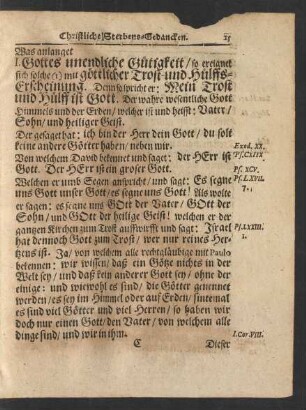 Christliche Sterbens-Gedancken. 25
Was anlanget
I. Gottes unendliche Gütigkeit / so ereignet
sich solche 1) mit göttlicher Trost- und Hülffs-
Erscheinung. Denn so spricht er: Mein Trost
und Hülff ist Gott. Der wahre wesentliche Gott
Himmels und der Erden / welcher ist und heisst: Vater /
Sohn / und heiliger Geist.
Der gesagt hat: ich bin der Herr dein Gott / du solt
keine andere Götter haben / neben mir.
Exod. XX.
Von welchem David bekennet und saget: der HErr ist
Gott. Der HErr ist ein groser Gott.
Ps. XCV.
Welchen er umb Segen anspricht / und sagt: Es segne
Ps. LXVII.
uns Gott unser Gott / es segne uns Gott! Als wolte
7.
er sagen: es segne uns GOtt der Vater / GOtt der
Sohn / und GOtt der heilige Geist! welchen er der
gantzen Kirchen zum Trost auffwirfft und sagt: Israel
Ps. LXXIII.
hat dennoch Gott zum Trost / wer nur reines Her-
1.
tzens ist. Ja / von welchem alle rechtgläubige mit Paulo
bekennen: wir wissen / daß ein Götze nichts in der
Welt sey / und daß kein anderer Gott sey / ohne der
einige: und wiewohl es sind / die Götter genennet
werden / es sey im Himmel oder auf Erden / sintemal
es sind viel Götter und viel Herren / so haben wir
doch nur einen Gott / den Vater / von welchem alle
dinge sind / und wir in ihm.
1. Cor. VIII.
C Dieser